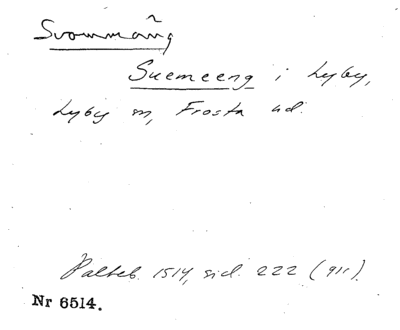 Svommãng
Suemeeng i Lyby,
Lyby sn, Frosta hd.
Palteb. 1514, sid. 222 (911).
Nr 6514.